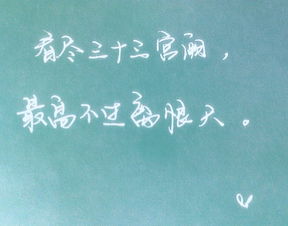 看尽三十三宫阙，
最高不过离恨天。